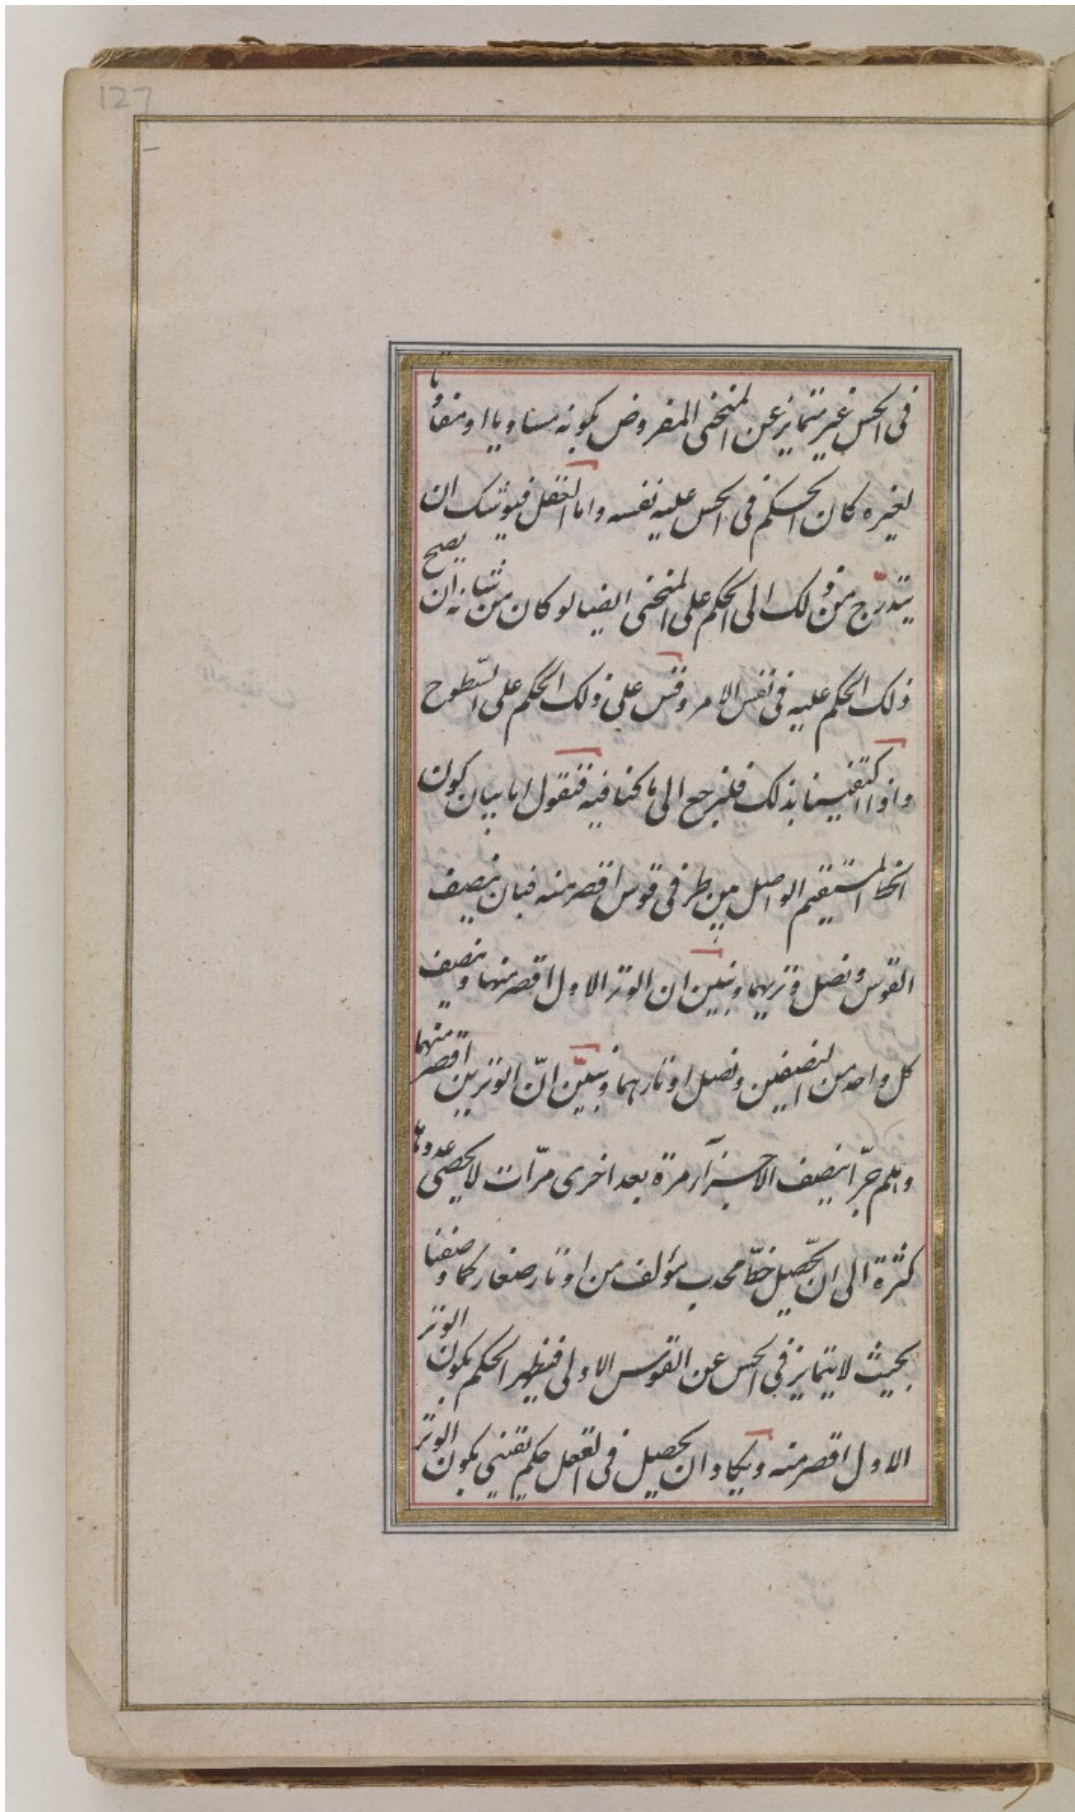 127
فى الحس غير متمايز عن المنحنى المفروض بكونه مساويا او مفاوتا
لغيره كان الحكم فى الحس عليه نفسه واما العقل فيوشك ان
يتدرج من ذلك الى الحكم على المنحنى ايضا لو كان من شانه ان يصح
ذلك الحكم عليه فى نفس الامر وقس على ذلك الحكم على السّطوح
واذا اكتفينا بذلك فلنرجع الى ما كنا فيه فنقول اما بيان كون
الخط المستقيم الواصل بين طرفى قوس اقصر منه فبان ننصف
القوس ونصل وتريهما ونبين ان الوتر الاول اقصر منهما وننصف
كل واحد من النصفين ونصل اوتارهما ونبيّن انّ الوترين اقصر منهما
وهلم جرّا بنصف الاجزآء مرة بعد اخرى مرّات لا يحصى عددها
كثرة الى ان يحّصل خطّ محدب مؤلف من اوتار صغار كما وصفنا
بحيث لا يتمايز فى الحس عن القوس الاولى فيظهر الحكم بكون الوتر
الاول اقصر منه ويكاد ان يحصل فى العقل حكم يقينى بكون الوتر